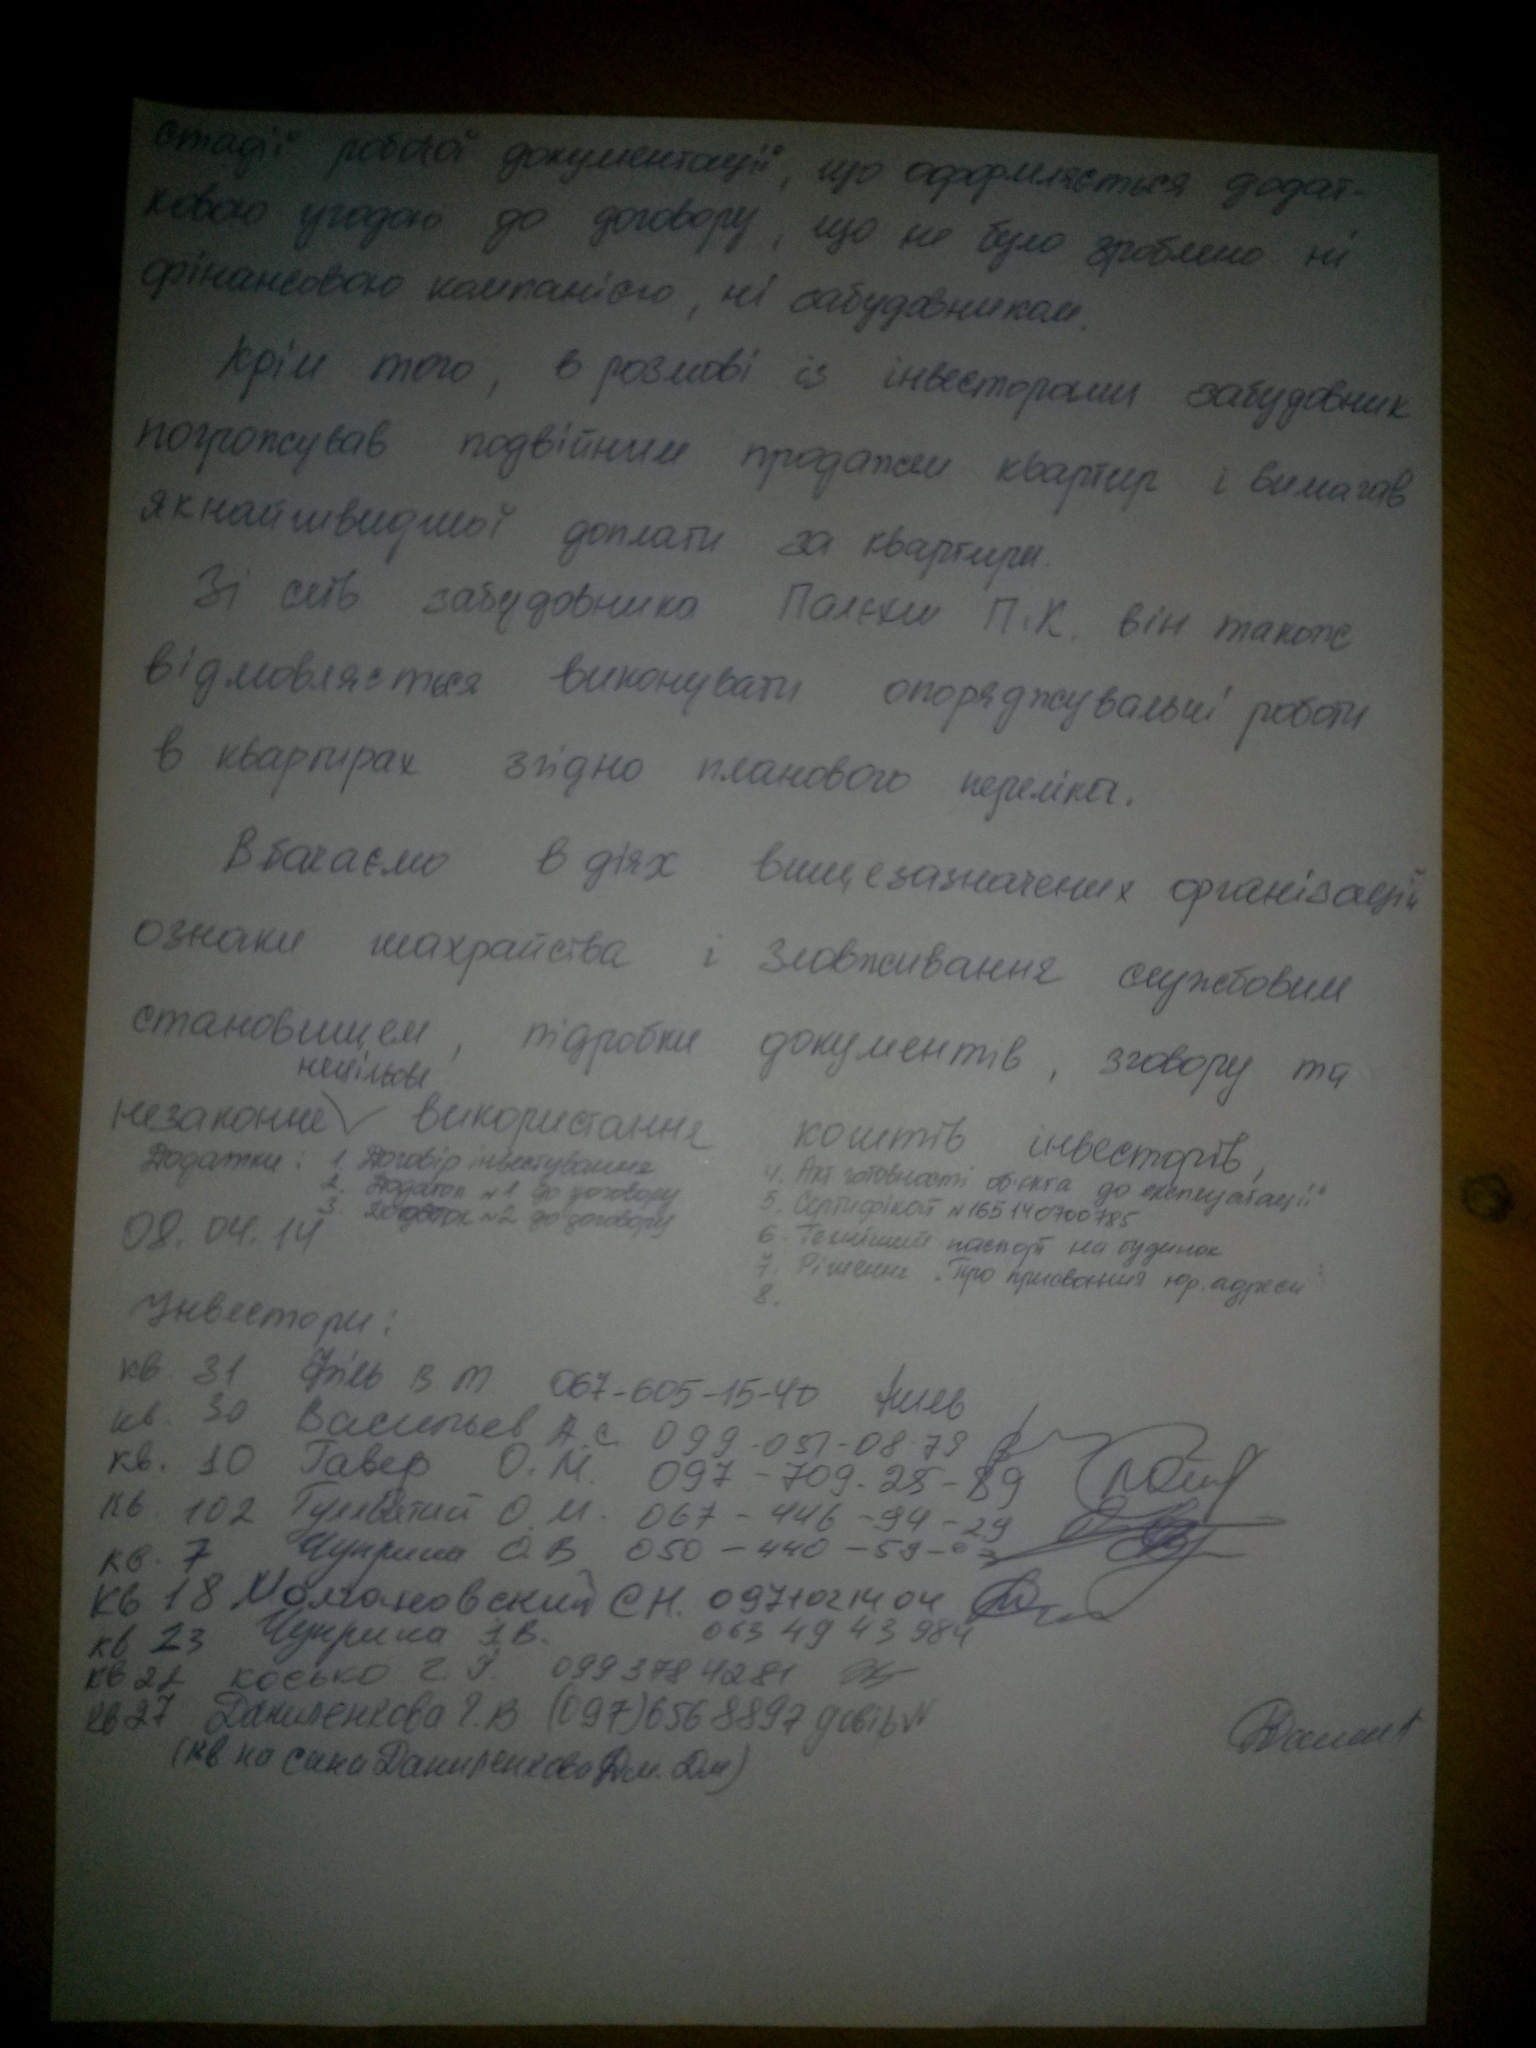 стадії робочої документації, що оформляється додат-
ковою угодою до договору, що не було зроблено ні
фінансовою компанією, ні забудовником.
Крім того, в розмові із інвесторами забудовник
погрожував подвійним продажем квартир і вимагав
якнайшвидшої доплати за квартири.
Зі слів забудовника П.К. він також
відмовляється виконувати опоряджувальні роботи
в квартирах згідно планового переліку.
Вбачаємо в діях вищезазначених організацій
ознаки шахрайства і зловживання службовим
становищем, підробки документів, зговору та
нецільове
незаконне використання коштів інвесторів,
Додатки: 1. Договір інвестування
2. Додаток №1 до договору
3. Додаток №2 до договору
4. Акт готовності об'єкта до експлуатації
5. Сертифікат №165140700785
6. Технічний паспорт на будинок
7. Рішення "Про присвоєння юр. адреси
8.
08.04.14
Інвестори:
кв. 31 В М 067-605-15-40
кв. 30 Васильєв А.С. 099-051-08-79
кв. 10 Гавер О.М. 097-709-25-89
кв. 102 О.М. 067-446-94-29
кв. 7 Чуприна О.В 050-440-59-03
кв 18 Молчановский С.Н. 0971021404
кв 23 Чуприна І.В. 0634943984
кв 22 Косько Г. 0993784281
кв 27 Даниленкова Г.В (097)6568897 довір
(кв на сина Даниленкова Дм. Дм)